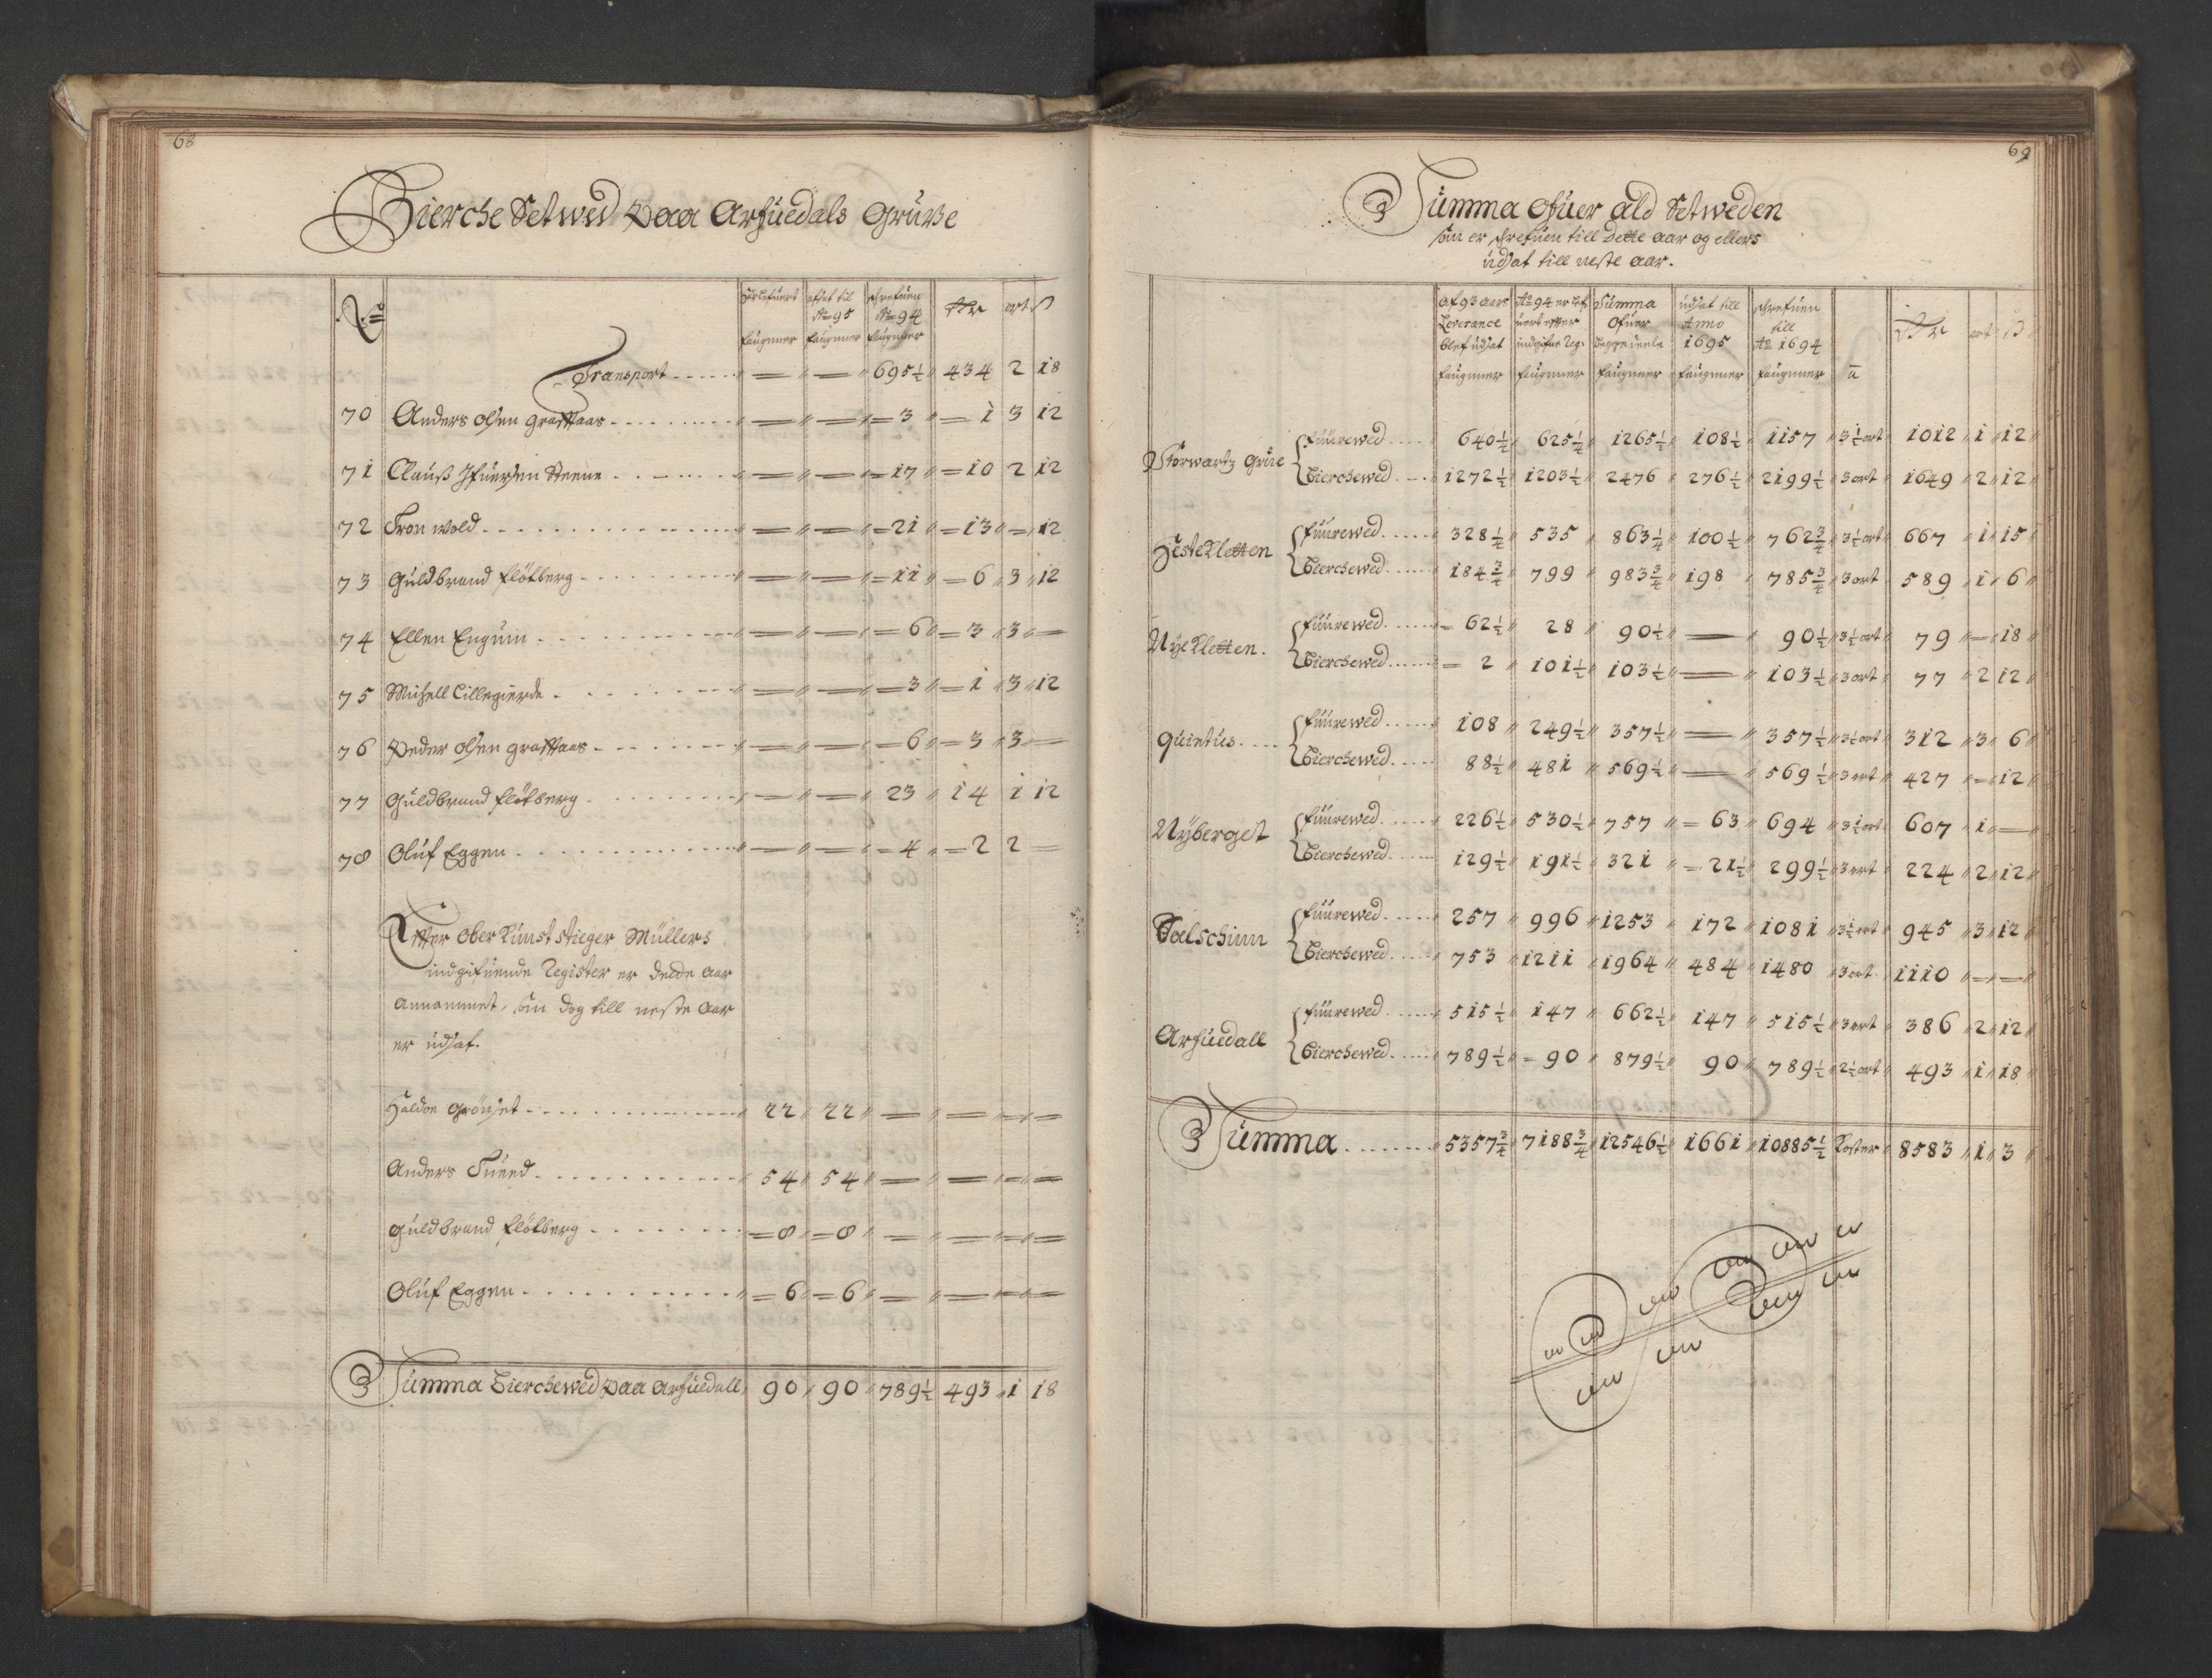 68
Bierche Setwed Paa Arfuedals Gruße
No
ofsat til Ao 95 faugnner
drefuen Ao 94 faugnner
ort
Transport 695½ 434 2 18
70 Anders Olsen 3 1 3 12
71 Clauß Ifuersen Steene 17 10 2 12
72 Tron wold 21 13 12
73 Guldbrand Flötberg 11 6 3 12
74 Ellen Enguin 6 3 3
75 Michell Lillegierde 3 1 3 12
76 Peder Olsen 6 3 3
77 Guldbrand Flötberg 23 14 1 12
78 Oluf Eggen 4 2 2
Efter Ober Kunst stieger Müllers
indgifuende Register er dende Aar
Annammet, som dog till neste Aar
er udsat.
Haldor Grönset 22 22
Anders Tueed 54 54
Guldbrand Flötberg 8 8
Oluf Eggen 6 6
Summa Bierchewed Paa Arfuedall 90 90 789½ 493 1 18
69
Summa Ofuer ald Setweden
som er drefuen till Dette Aar og ellers
udsat till neste Aar.
Af 93 Aars Leverance blef udsat faugnner
Ao 94 er lefuert efter indgifne Reg. faugnner
Summa Ofuer begge deele faugnner
udsat till Anno 1695 faugnner
drefuen till Ao 1694 faugnner
a
ort
Storwartz Grue
Fuurewed 640½ 625½ 1265½ 108½ 1157 3½ ort 1012 1 12
Bierchewed 1272½ 1203½ 2476 276½ 2199½ 3 ort 1649 2 12
Hestekletten
Fuurewed 328¼ 535 863¼ 100½ 762¾ 3½ ort 667 1 15
Bierchewed 184¾ 799 983¾ 198 785¾ 3 ort 589 1 6
Nyekletten.
Fuurewed 62½ 28 90½ 90½ 3½ ort 79 18
Bierchewed 2 101½ 103½ 103½ 3 ort 77 2 12
Quintus
Fuurewed 108 249½ 357½ 357½ 3½ ort 312 3 6
Bierchewed 88½ 481 569½ 569½ 3 ort 427 12
Nyberget
Fuurewed 226½ 530½ 757 63 694 3½ ort 607 1
Bierchewed 129½ 191½ 321 21½ 299½ 3 ort 224 2 12
Salschinn
Fuurewed 257 996 1253 172 1081 3½ ort 945 3 12
Bierchewed 753 1211 1964 484 1480 3 ort 1110
Arfuedall
Fuurewed 515½ 147 662½ 147 515½ 3 ort 386 2 12
Bierchewed 789½ 90 879½ 90 789½ 2½ ort 493 1 18
Summa 5357¾ 7188¾ 12546½ 1661 10885½ Koster 8583 1 3